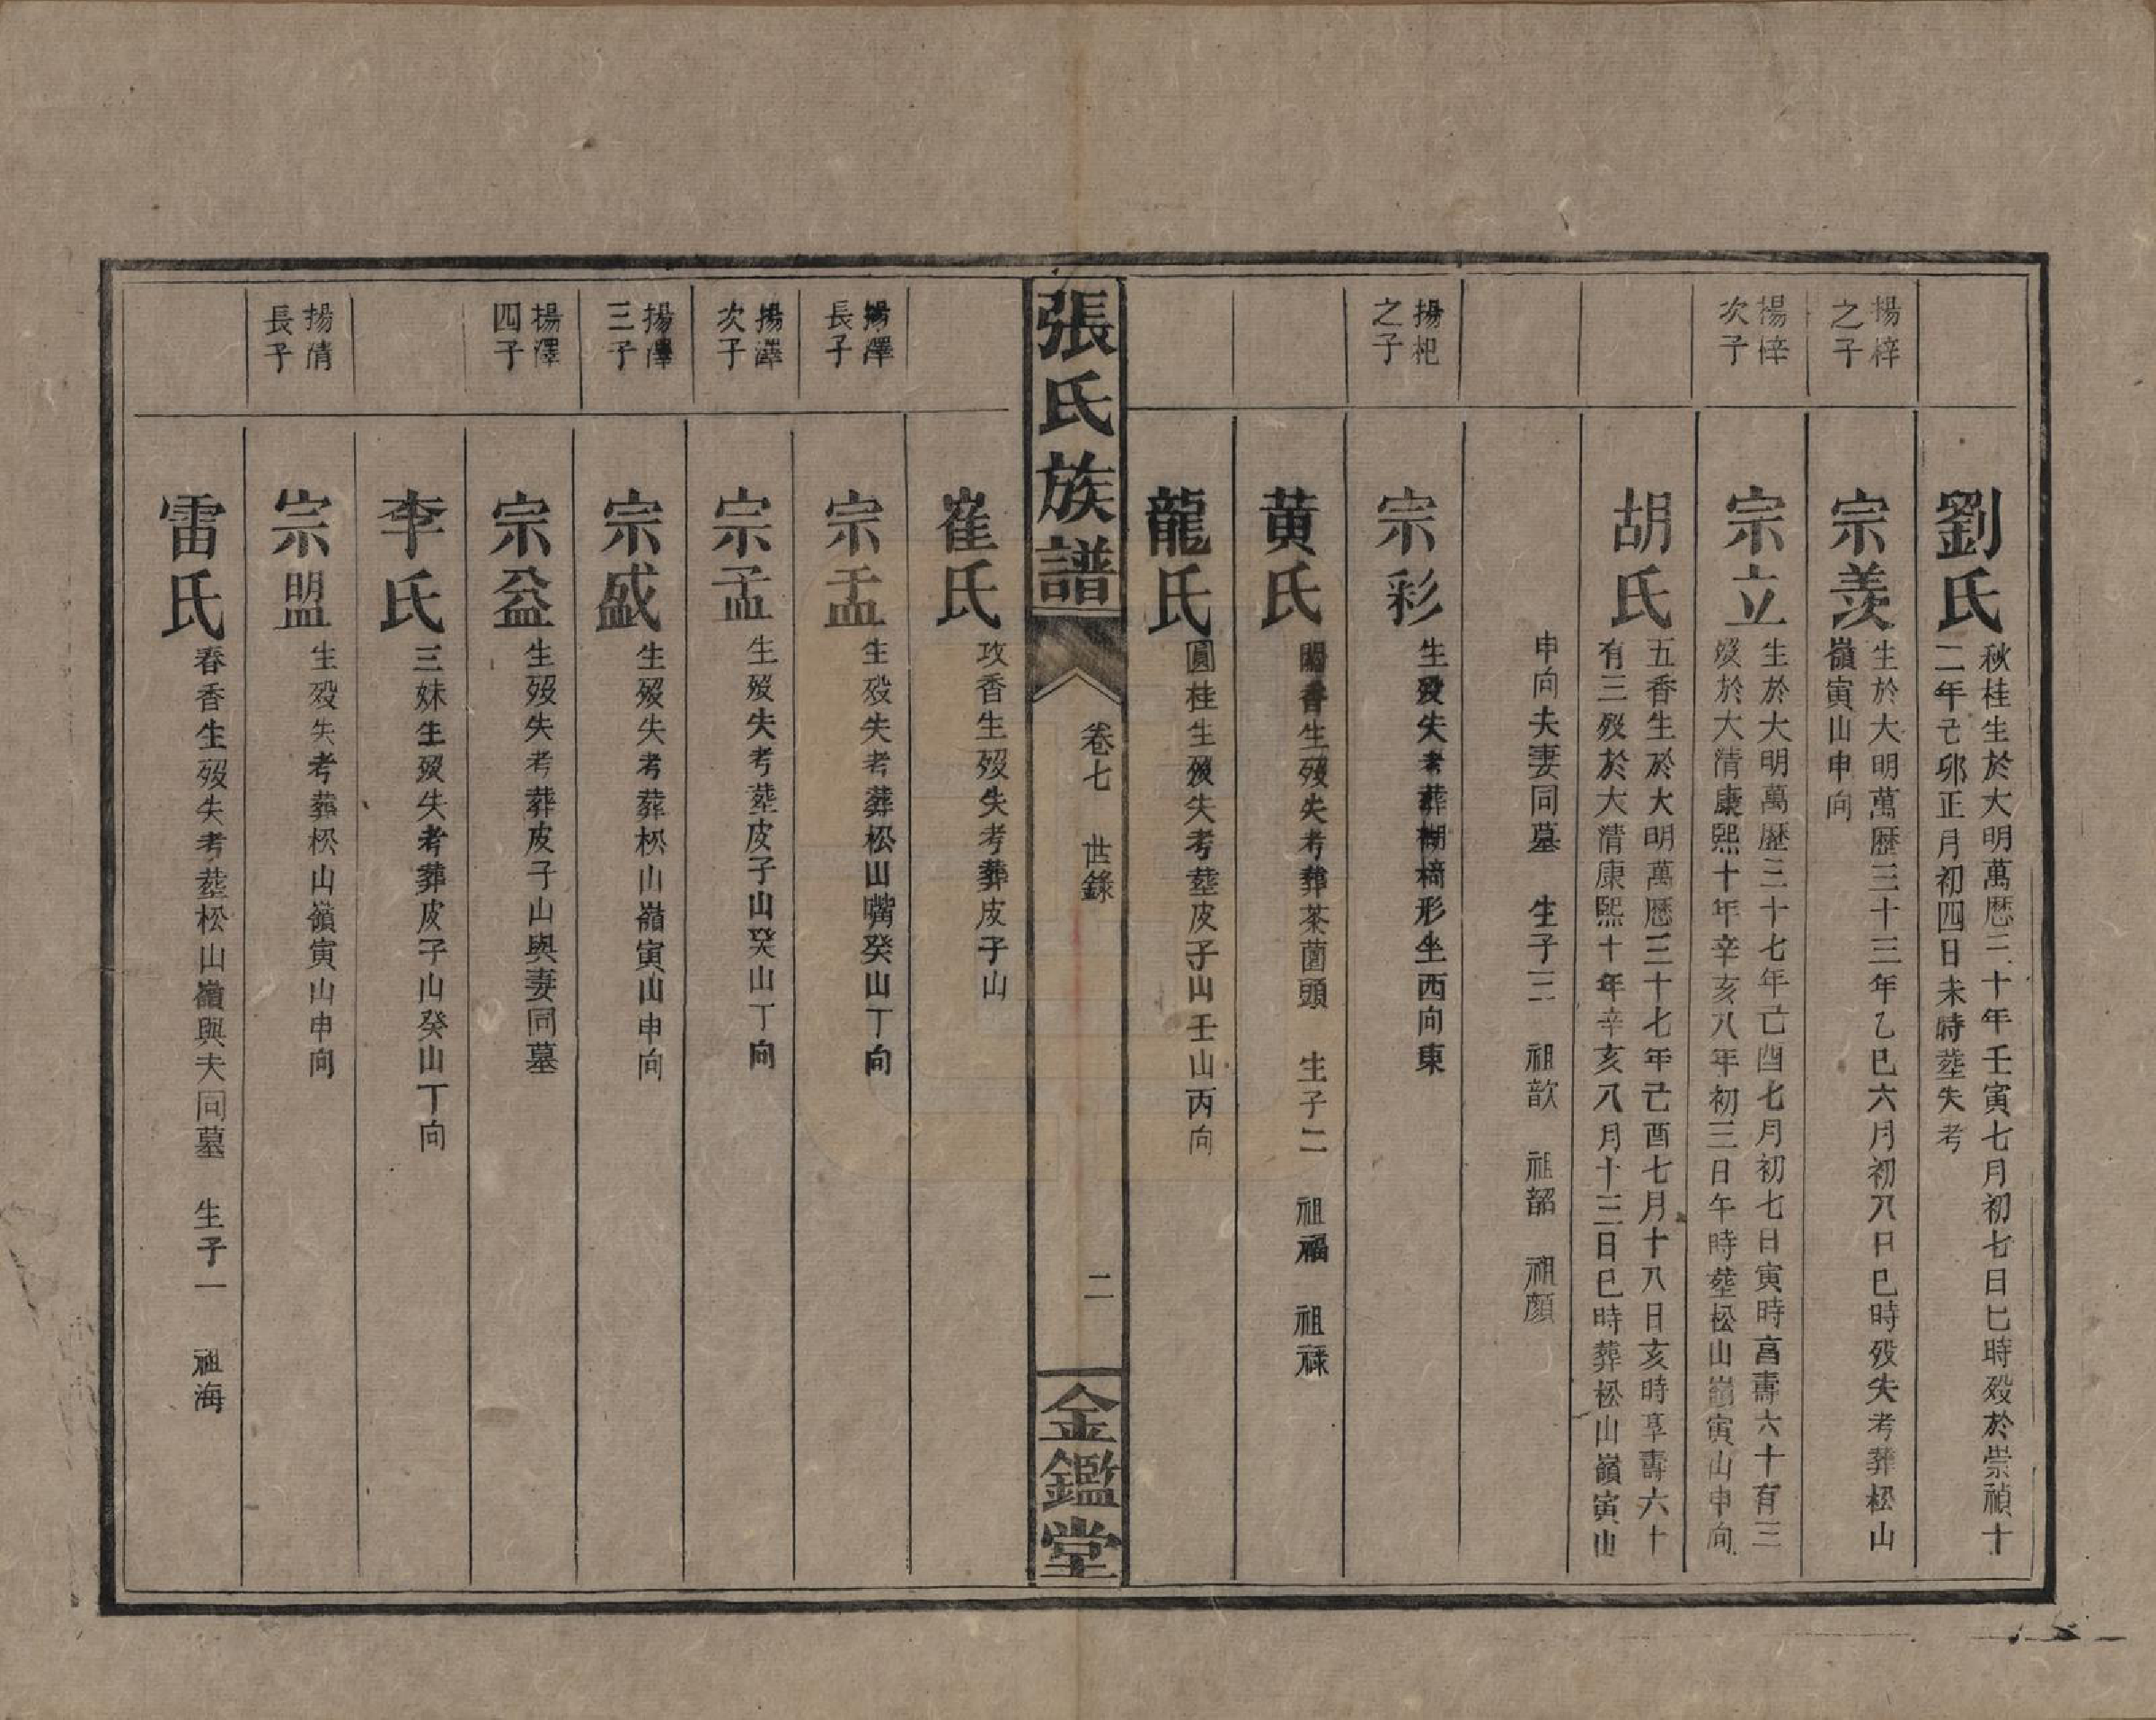 劉氏
秋桂生於大明萬歴三十年壬寅七月初七日巳時殁於崇禎十
二年己卯正月初四日未時塟失考
揚梓
之子
宗羨
生於大明萬歴三十三年乙巳六月初八日巳時殁失考葬松山
嶺寅山申向
楊梓
次子
宗立
生於大明萬歴三十七年己酉七月初七日寅時亯壽六十有三
殁於大清康熙十年辛亥八年初三日午時塟松山嶺寅山申向
胡氏
五香生於大明萬歴三十七年己酉七月十八日亥時享壽六十
有三殁於大清康熙十年辛亥八月十三日巳時葬松山嶺寅山
申向夫妻同墓 生子三 祖歆 祖韶 祖顏
揚杞
之子
宗彩
生殁失考葬椅形坐西向東
黃氏
香生殁失考葬茶薗頭 生子二 祖福 祖祿
龍氏
圓桂生殁失考塟皮子山壬山丙向
張氏族譜
卷七 世錄
二
金鑑堂
崔氏
攻香生殁失考葬皮子山
揚澤
長子
宗盂
生殁失考葬松山嘴癸山丁向
揚澤
次子
宗孟
生殁失考塟皮子山癸山丁向
揚澤
三子
宗盛
生殁失考葬松山嶺寅山申向
揚澤
四子
宗益
生殁失考葬皮子山與妻同墓
李氏
三妹生殁失考葬皮子山癸山丁向
揚清
長子
宗盟
生殁失考葬松山嶺寅山申向
雷氏
春香生殁失考塟松山嶺與夫同墓 生子一 祖海